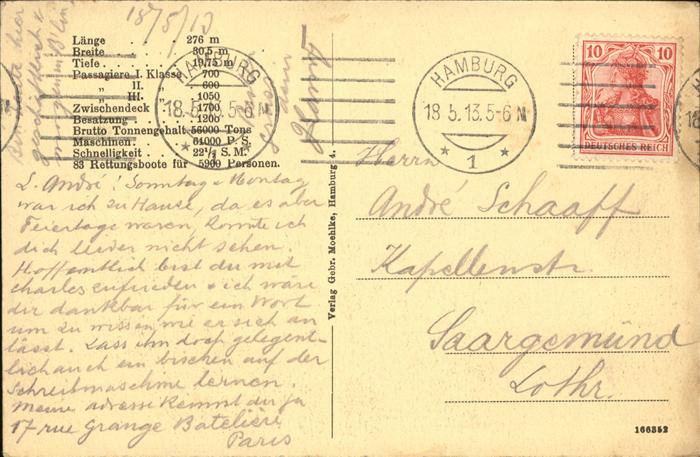 18/5/13
Länge . . . . 276 m
Breite . . . 30,5 m
Tiefe . . . 19,75 m
Passagiere I. Klasse 700
„ II. „ 600
„ III. 1050
Zwischendeck . 1700
Besatzung . . 1200
Brutto Tonnengehalt 56000 Tons
Maschinen. 61000 P. S.
Schnelligkeit . 22½ S. M.
83 Rettungsboote für 5300 Personen.
Bin heute hier
geschäftlich &
morgen in Berlin
L. André! Sonntag & Montag
war ich zu Hause, da es aber
Feiertage waren, konnte ich
dich leider nicht sehen.
Hoffentlich bist du mit
Charles zufrieden & ich wäre
dir dankbar für ein Wort
um zu wissen wie er sich an
lässt. Lass ihn doch gelegent-
lich auch ein bischen auf der
Schreibmaschine lernen.
Meine adresse kennst du ja
17 rue Grange Batelière
Paris
Verlag Gebr. Moehlke, Hamburg 4.
HAMBURG
18.5.13.5-6 N
* 1 *
HAMBURG
18.5.13.5-6 N
* 1 *
10 10
DEUTSCHES REICH
Herrn
André Schaaff
Kapellenstr.
Saargemünd
Lothr.
166352